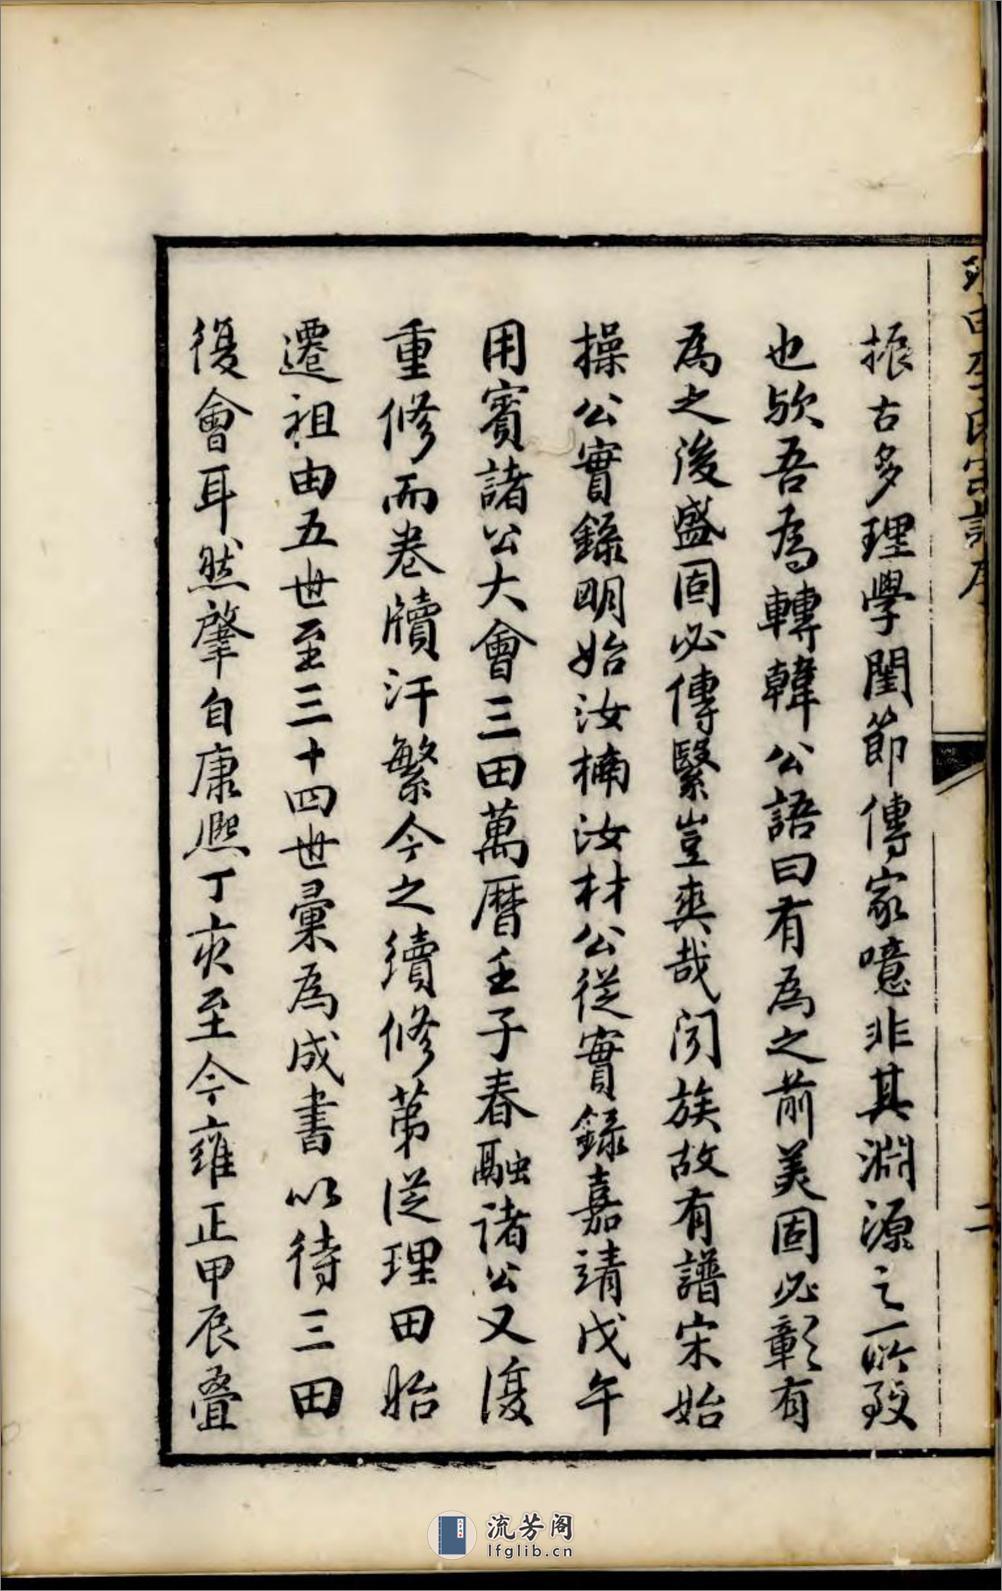 理田李氏宗譜序
二
振古多理學閨節傳家噫非其淵源之所致
也歟吾爲轉韓公語曰有爲之前美固必彰有
爲之後盛固必傳繄豈爽哉閱族故有譜宋始
操公實錄明始汝楠汝材公從實錄嘉靖戊午
用賓諸公大會三田萬曆壬子春融諸公又復
重修而卷牘汗繁今之續修第從理田始
遷祖由五世至三十四世彙爲成書以待三田
復會耳然肇自康熙丁亥至今雍正甲辰疊
流芳阁
lfglib.cn